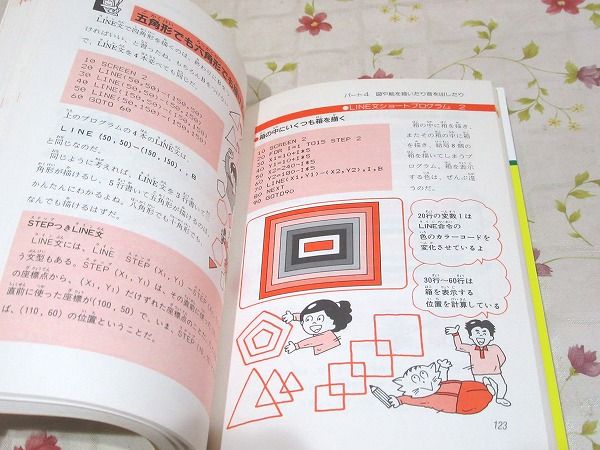 五角形でも六角形でも
LINE文で四角形を描くのは、
ければいい、と言ったね。もちろん
で、LINE文を4本並べても同じだ。
10 SCREEN 2
20 LINE(50,50)-(150,50)
60 GOTO 60
上のプログラムの4本のLINE文は、
LINE (50,50)-(150,150),,B
と同じなのだ。
同じように考えれば、LINE文を3行書いて三
角形が描けるし、5行書いて五角形が描けるのは、
かんたんにわかるよね。八角形でも十角形でも、
なんでも描けるはずだ。
STEPつきLINE文
LINE文には、LINE STEP (X₁, Y₁)
う文型もある。STEP (X₁, Y₁) は、その直前
の座標点から、(X₁, Y₁) だけずれた座標点の
直前に使った座標が(100, 50)で、いま、STEP (10,
ば、(110, 60) の位置ということだ。
パート4 図や絵を描いたり音を出したり
●LINE文ショートプログラム 2
●箱の中にいくつも箱を描く
10 SCREEN 2
20 FOR I=1 TO15 STEP 2
30 X1=10+I*5
40 Y1=10+I*5
50 X2=240-I*5
60 Y2=180-I*5
70 LINE(X1,Y1)-(X2,Y2),I,B
80 NEXT
90 GOTO90
箱の中に箱を描き、
またその箱の中に箱
を描き、結局8個の
箱を描いてしまうプ
ログラム。箱を表示
する色は、ぜんぶ違
うのだ。
20行の変数Iは
LINE命令の
色のカラーコードを
変化させているよ
30行～60行は
箱を表示する
位置を計算している
123